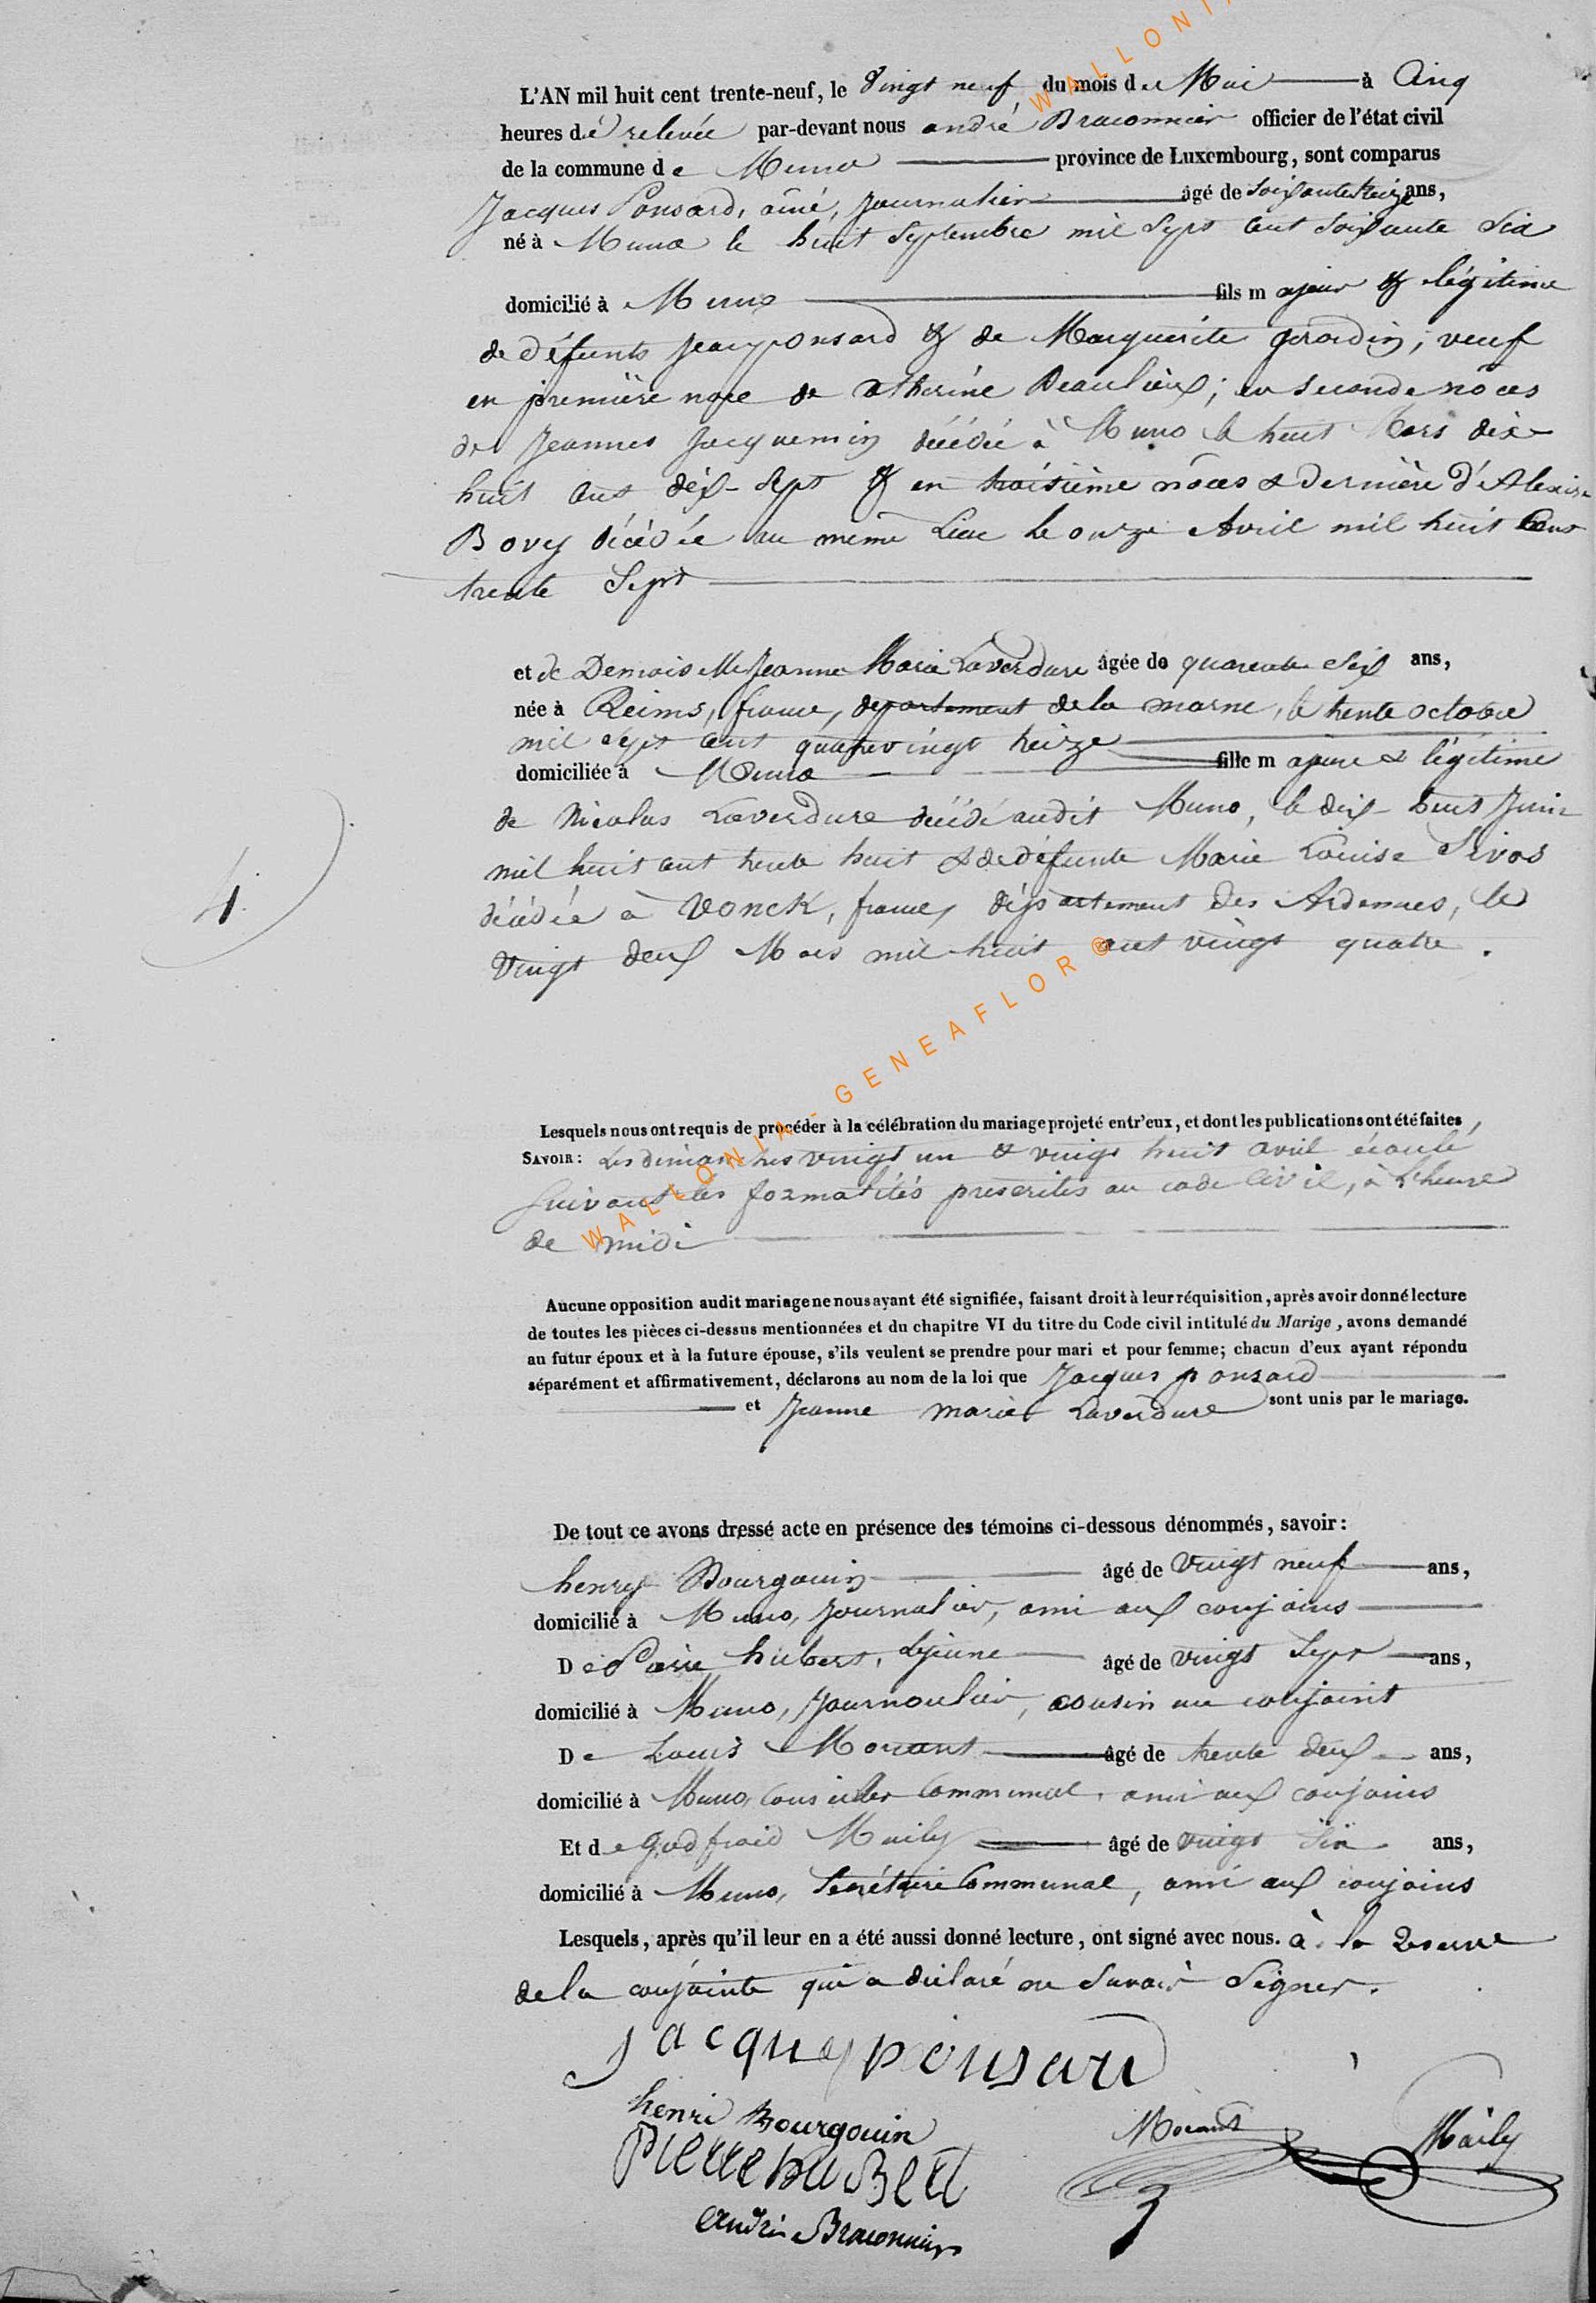 WALLONIA
L'AN mil huit cent trente-neuf, le Vingt neuf du mois de Mai à Cinq
heures dé relevée par-devant nous andré Braconnier officier de l'état civil
de la commune de Muno province de Luxembourg, sont comparus
Jacques Ponsard, aîné, Journalier âgé de Soixante treize ans,
né à Muno le huit Septembre mil Sept Cent Soixante Six
domicilié à Muno fils majeur & légitime
de défunts Jean ponsard & de Marguerite gerardin; veuf
en première noce de Catherine Beaulieux; en seconde nôces
de Jeannes Jacquemin décédée à Muno le huit Mars dix
huit Cent dix-Sept & en troisième nôces & dernière d'Alexise
Bovy décédée au même Lieu le onze Avril mil huit Cent
trente Sept
et de Demoiselle Jeanne Marie Laverdure âgée de quarante Six ans,
née à Reims, france, departement de la marne, le trente octobre
mil Sept Cent quatre vingt treize
domiciliée à Muno fille majeure & légitime
de Nicolas Laverdure décédé audit Muno, le dix-huit Juin
mil huit cent trente huit & de défunte Marie Louise Sivos
décédée à Vonck, france, département des Ardennes, le
Vingt deux Mars mil huit cent vingt quatre.
4.
Lesquels nous ont requis de procéder à la célébration du mariage projeté entr'eux, et dont les publications ont été faites,
SAVOIR: Les dimanches vingt un & vingt huit avril écoulé
Suivant les formalités prescrites au code Civil, à l'heure
de midi
WALLONIA - GENEAFLOR ©
Aucune opposition audit mariage ne nous ayant été signifiée, faisant droit à leur réquisition, après avoir donné lecture
de toutes les pièces ci-dessus mentionnées et du chapitre VI du titre du Code civil intitulé du Marige, avons demandé
au futur époux et à la future épouse, s'ils veulent se prendre pour mari et pour femme; chacun d'eux ayant répondu
séparément et affirmativement, déclarons au nom de la loi que Jacques ponsard
et Jeanne marie Laverdure sont unis par le mariage.
De tout ce avons dressé acte en présence des témoins ci-dessous dénommés, savoir:
henry Bourgouin âgé de vingt neuf ans,
domicilié à Muno, Journalier, ami aux conjoins
De Pierre hubert, Lejeune âgé de vingt Sept ans,
domicilié à Muno, Journoulier, cousin au conjoint
De Louis Morant âgé de trente deux ans,
domicilié à Muno, Conseiller Communal, ami aux conjoins
Et de Godfroid Maily âgé de vingt Six ans,
domicilié à Muno, Secrétaire Communal, ami aux conjoins
Lesquels, après qu'il leur en a été aussi donné lecture, ont signé avec nous. à la Reserve
de la conjointe qui a déclaré ne Savoir Signer.
jacques ponsard
henri Bourgouin
Morant
Maily
pierre huBert
andré Braconnier